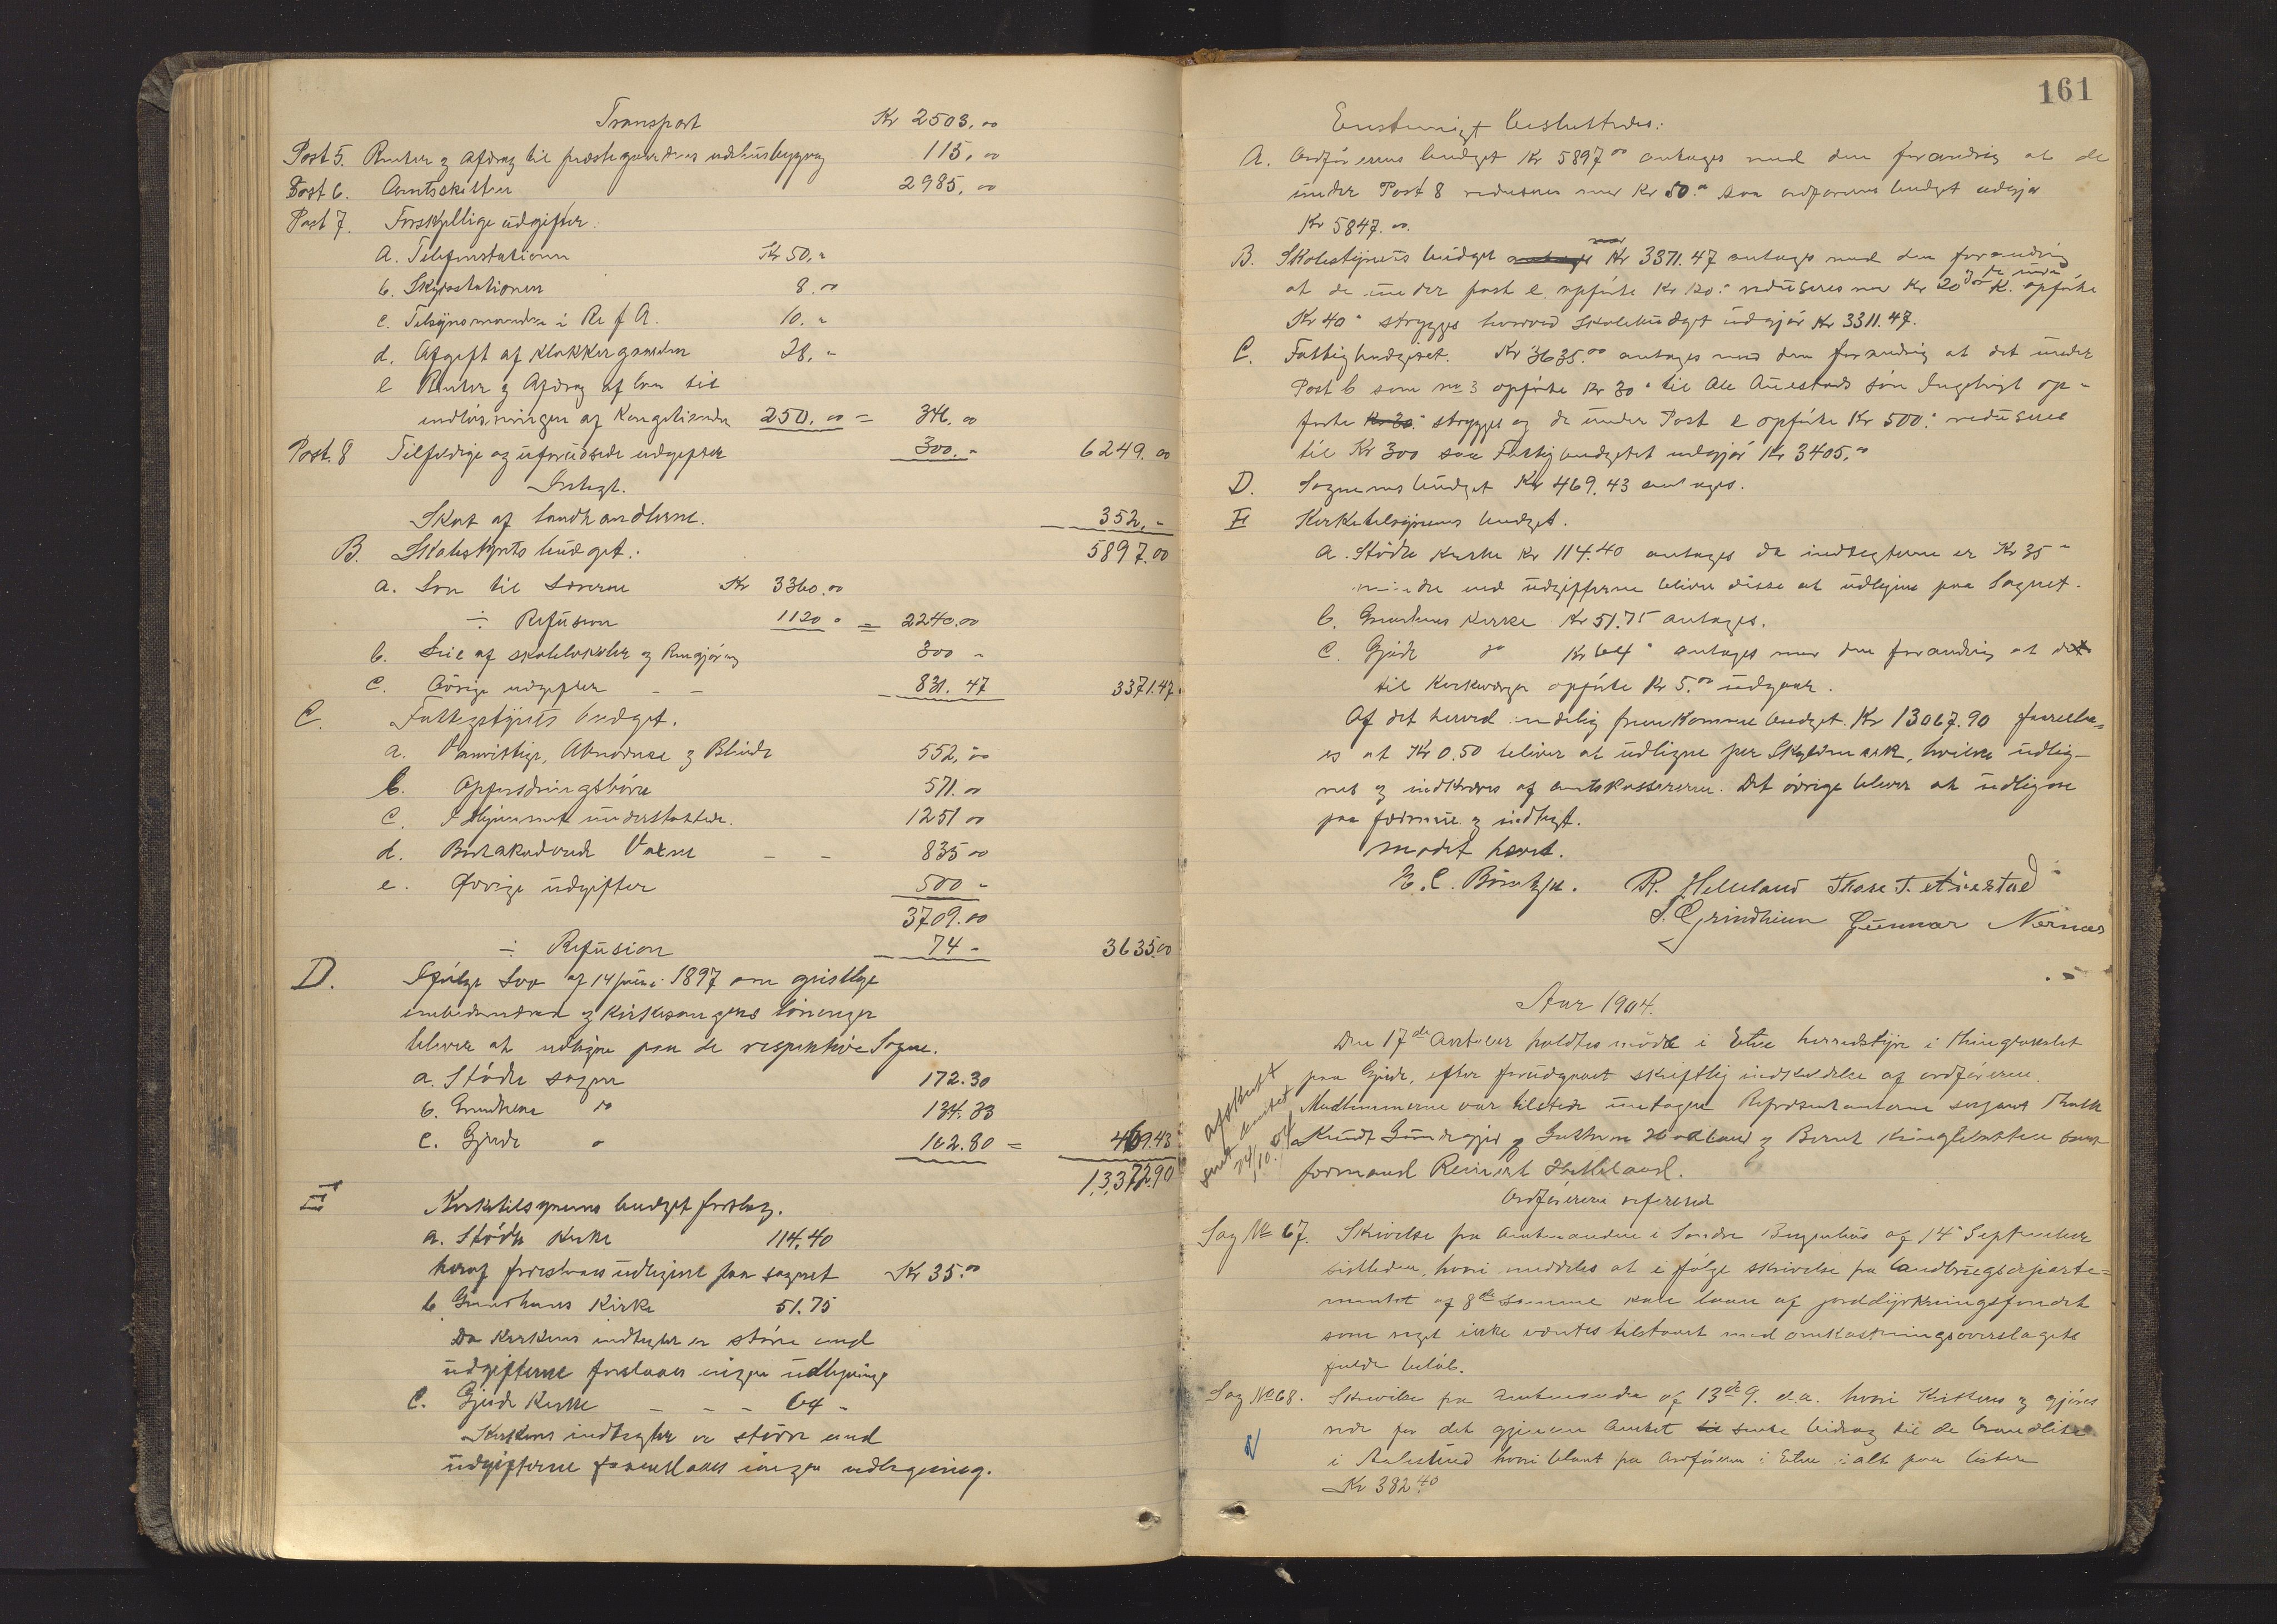 Transport Kr 2503.00
Post 5. Renter og Afdrag til præstegaardens udhusbygning 115.00
Post 6. Amtsskatten 2985.00
Post 7. Forskjellige udgifter.
a. Telefonstationen Kr 50.-
b. Skydsstationen 8.00
c. Tilsynsmanden i R. f A. 10.-
d. Afgift af Klokkergaarden 28.-
e Renter og Afdrag af laan til
indløsningen af Kongetienden 250.00 = 346.00
Post. 8 Tilfældige og uforudsede udgifter 300.- 6249.00
Indtægt.
Skat af landhandlerne. 352.-
5897.00
B. Skolestyrets budget.
a. Løn til Lærerne Kr 3360.00
÷ Refusion 1120 " = 2240.00
b. Leie af skolelokaler og Rengjøring 300 -
c. Øvrige udgifter - - 831.47 3371.47
C. Fattigstyrets budget.
a. Vanvittige, Aandssvage og Blinde 552.00
b. Opfostringsbørn 571.00
c. I Hjemmet understøttede. 1251.00
d. Bortakkorderede Voksne - - 835.00
e. Øvrige udgifter 500 -
3709.00
÷ Refusion 74 - 3635.00
D. Ifølge Lov af 14 juni 1897 om geistlige
embedsmænd og Kirkesangeres lønninger
bliver at udligne paa de respektive Sogne.
a. Stødle sogn 172.30
b. Grindheim do 134.33
c. Gjerde " 162.80 = 469.43
13,372.90
E Kirketilsynenes budgetforslag.
a. Stødle Kirke 114.40
heraf foreslaaes udlignet paa sognet Kr 35.00
b Grindheims Kirke 51.75
Da Kirkens indtægter er større end
udgifterne foreslaaes ingen udligning
c. Gjerde Kirke - - - 64 -
Kirkens indtægter er større end
udgifterne foreslaaes ingen udligning.
161
Enstemigt besluttedes:
A. Ordførerens budget Kr 5897.00 antages med den forandring at de
under Post 8 reduseres med Kr 50.- saa ordførerens budget udgjør
Kr 5847.00.
B. Skolestyrets budget Kr 3371.47 antages med den forandring
at de under post c. opførte Kr 120.- reduseres med Kr 20 og de under K. opførte
Kr 40 - stryges hvorved Skolebudget udgjør Kr 3311.47.
C. Fattigbudgettet. Kr 3635.00 antages med den forandring at det under
Post b som no 3 opførte Kr 30 - til Ole Auestads søn Ingebrigt op-
førte Kr 30.- stryges og de under Post e opførte Kr 500.- reduseres
til Kr 300 saa Fattigbudgettet udgjør Kr 3405.00
D. Sognenes budget Kr 469.43 antages.
E Kirketilsynenes budget.
a. Stødle Kirke Kr 114.40 antages da indtægterne er Kr 35 -
mindre end udgifterne bliver disse at udligne paa Sognet.
b. Grindheims Kirke Kr 51.75 antages.
c. Gjerde do Kr 64 - antages med den forandring at det
til Kirkeværge opførte Kr 5.00 udgaar.
Af det herved endelig fremkomne budget Kr 13067.90 foreslaa-
es at Kr 0.50 bliver at udligne per Skyldmark, hvilke udlig-
nes og indkræves af amtskassereren. Det øvrige bliver at udligne
paa formue og indtægt.
Mødet hævet.
R. Helleland Thore T. Auestad
S. Grindheim Gunnar Nernæs
Aar 1904.
Den 17de October holdtes møde i Etne herredstyre i thinglokalet
paa Gjerde, efter forudgaaet skriftlig indkaldelse af ordføreren.
Medlemmerne var tilstede undtagen Repræsentanterne
Knud og og Bernt
formand Reinert Helleland.
Afskrift
sendt amtet
24/10.04
Ordføreren refererede
Sag No 67. Skrivelse fra Amtmanden i Søndre Bergenhus af 14 September
sidstleden, hvori meddeles at i følge skrivelse fra Landbrugsdeparte-
mentet af 8de samme kan laan af jorddyrkningsfondet
som regel ikke ventes tilstaaet med omkostningsoverslagets
fulde beløb.
Sag No 68. Skrivelse fra Amtmanden af 13de 9. d.a. hvori kvitteres og gjøres
rede for det gjennem Amtet sendte bidrag til de brandlidte
i Aalesund hvori blant fra Ordføreren i Etne ialt paa listen
Kr 382.40